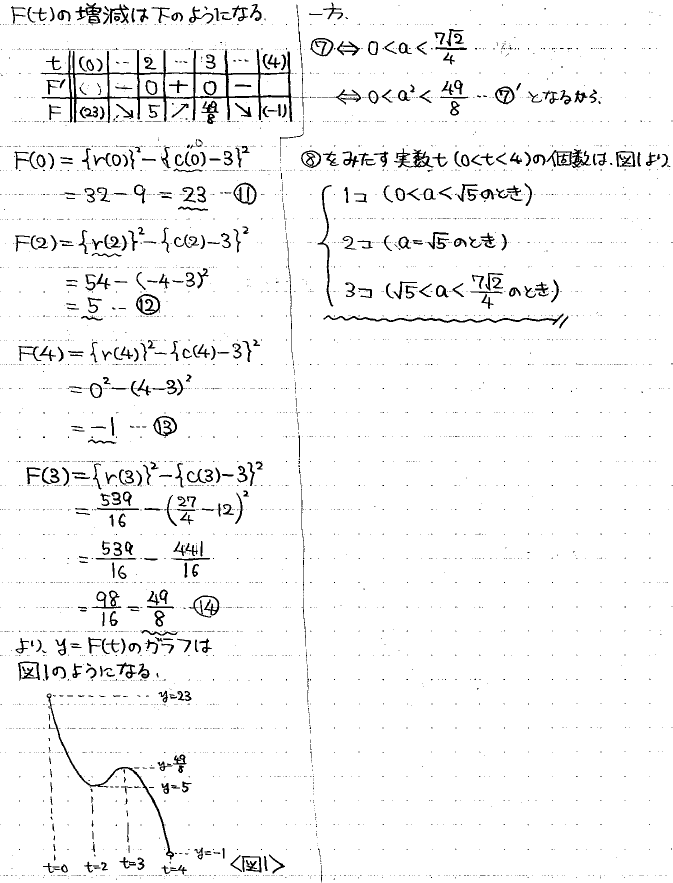 F(t)の増減は下のようになる.
t (0) … 2 … 3 … (4)
F' ( ) − 0 + 0 −
F (23) ↘ 5 ↗ 49/8 ↘ (-1)
F(0) = {r(0)}² − {c(0)−3}²
0
= 32 − 9 = 23 … ⑪
F(2) = {r(2)}² − {c(2)−3}²
= 54 − (−4−3)²
= 5 … ⑫
F(4) = {r(4)}² − {c(4)−3}²
= 0² − (4−3)²
= −1 … ⑬
F(3) = {r(3)}² − {c(3)−3}²
= 539/16 − (27/4 − 12)²
= 539/16 − 441/16
= 98/16 = 49/8 … ⑭
より、y=F(t)のグラフは
図1のようになる.
y=23
y=49/8
y=5
y=−1
t=0 t=2 t=3 t=4 <図1>
一方.
⑦ ⇔ 0<a<7√2/4
⇔ 0<a²<49/8 … ⑦' となるから、
⑧をみたす実数t (0<t<4)の個数は、図1より
1コ (0<a<√5のとき)
2コ (a=√5のとき)
3コ (√5<a<7√2/4のとき)